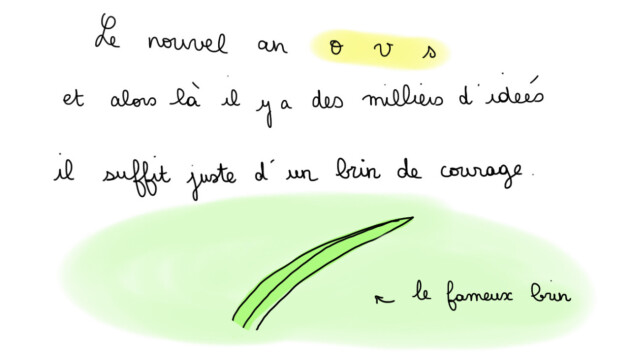 Le nouvel an o v s
et alors là il y a des milliers d'ideés
il suffit juste d'un brin de courage.
← le fameux brin